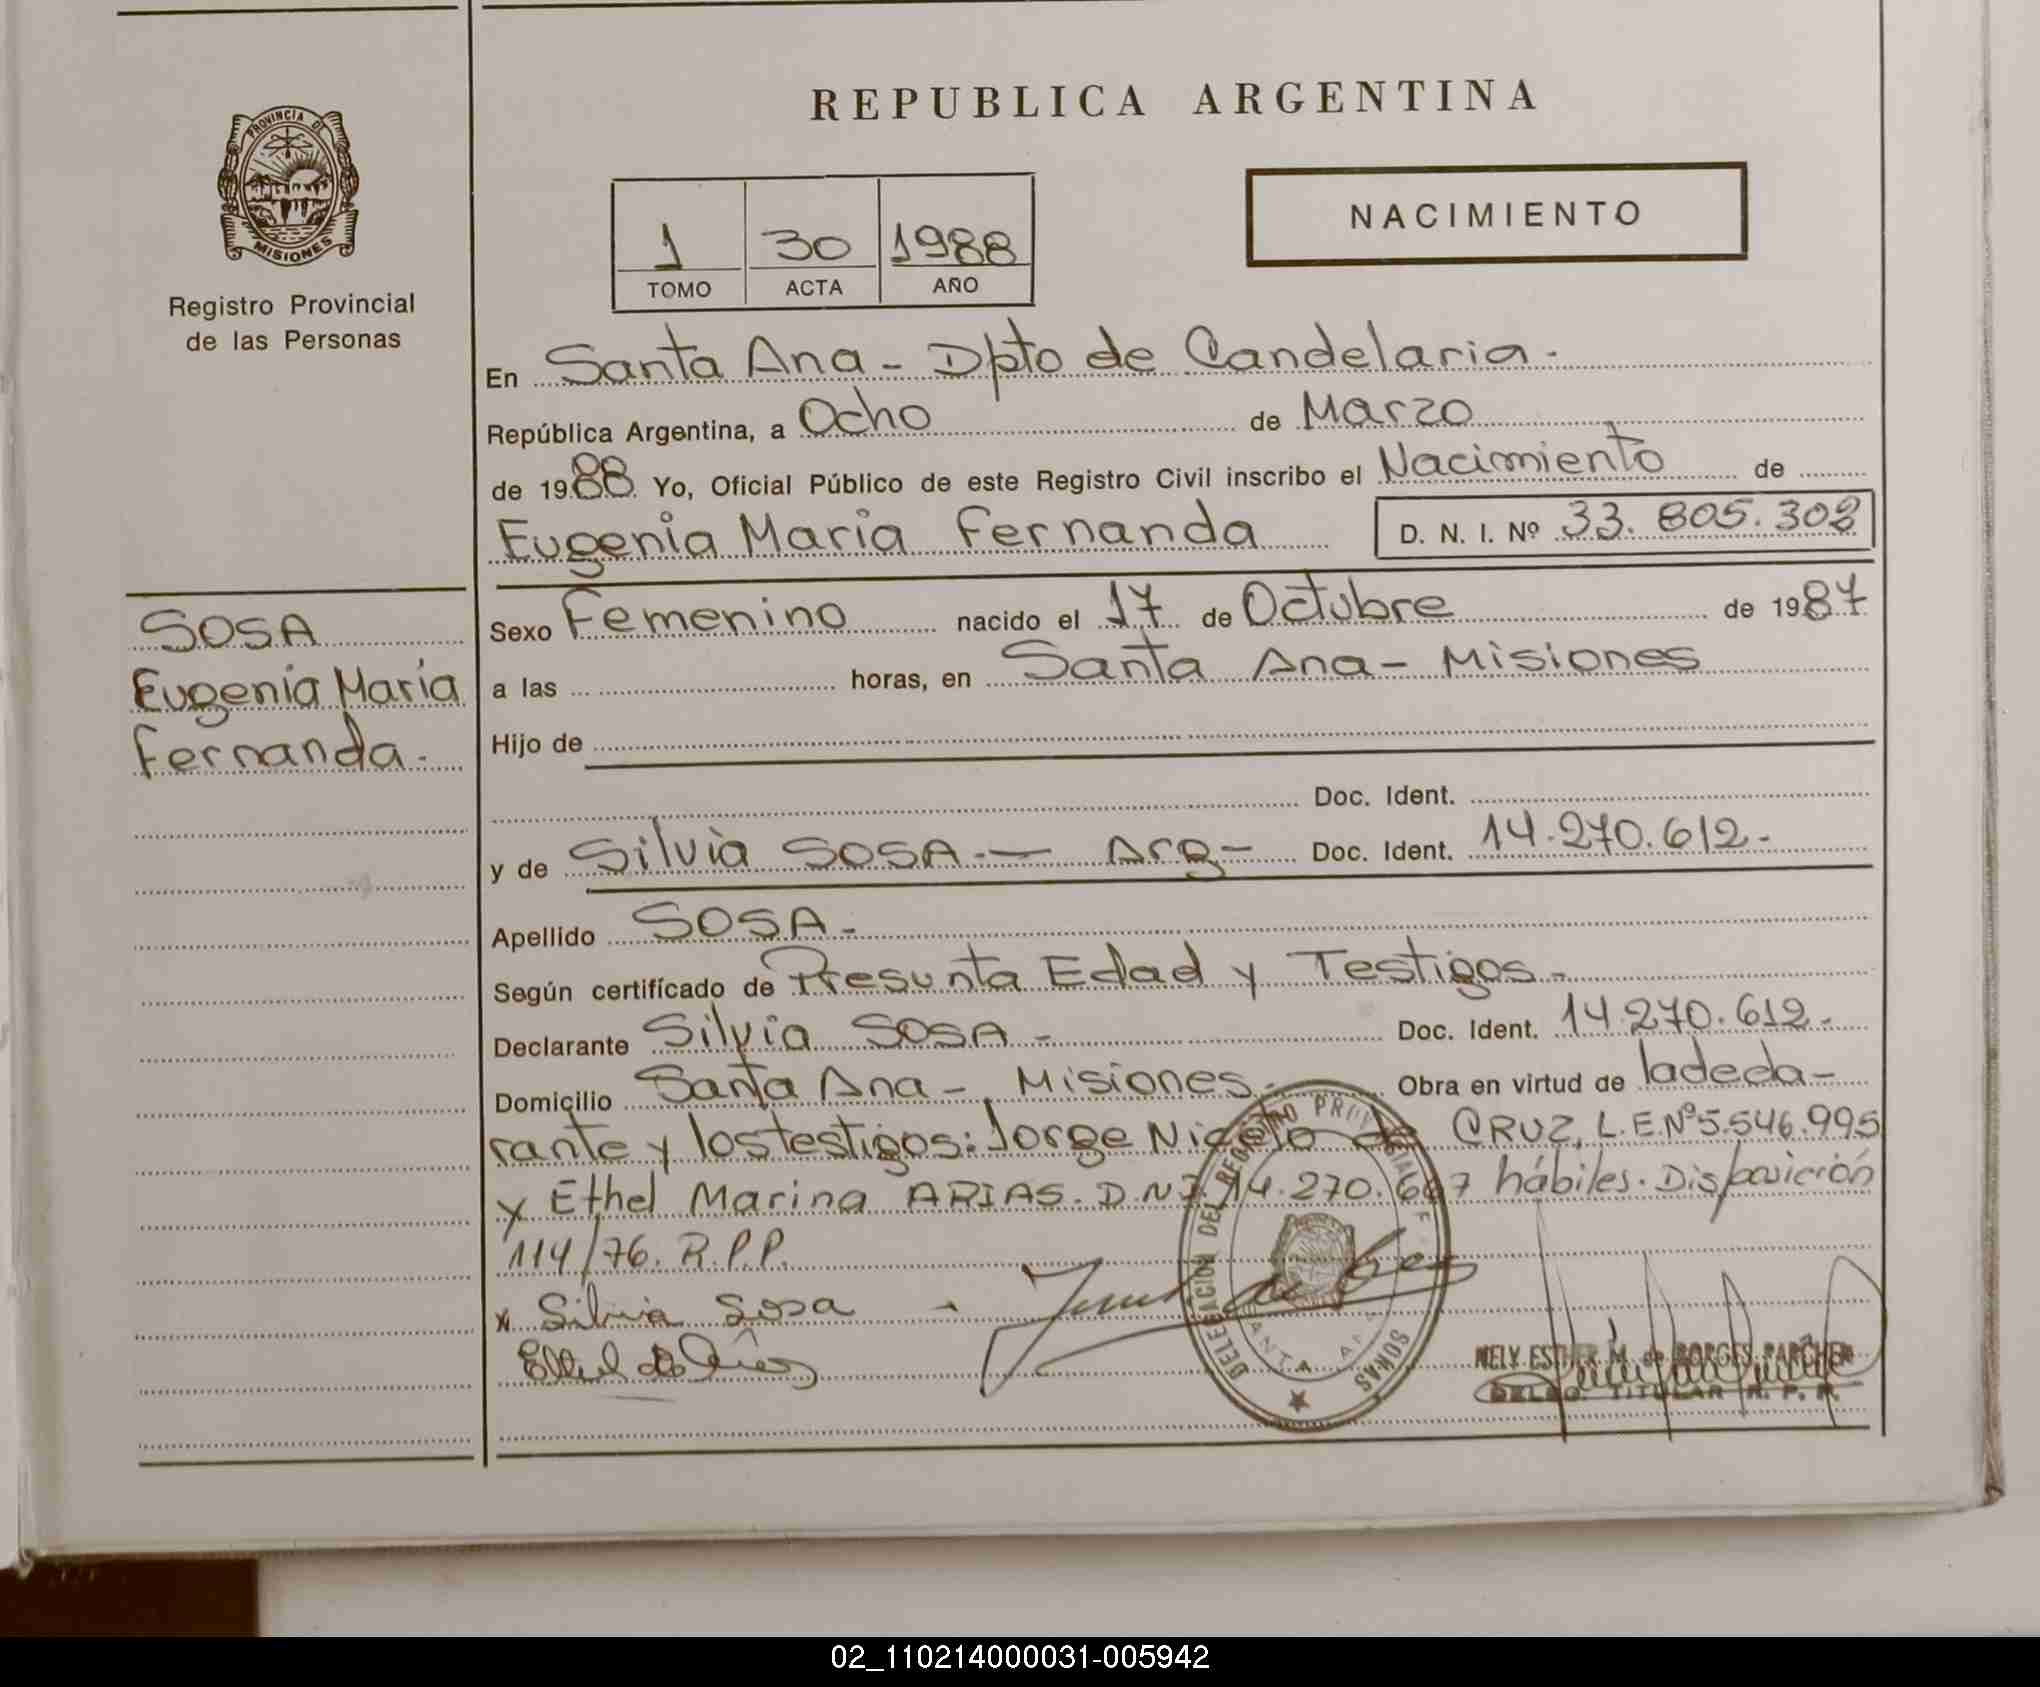 REPUBLICA ARGENTINA
PROVINCIA DE
MISIONES
Registro Provincial
de las Personas
1 30 1988
TOMO ACTA AÑO
NACIMIENTO
En Santa Ana - Dpto de Candelaria -
República Argentina, a Ocho de Marzo
de 1988. Yo, Oficial Público de este Registro Civil inscribo el Nacimiento de
Eugenia Maria Fernanda D. N. I. Nº 33.805.302
SOSA
Eugenia Maria
Fernanda.-
Sexo Femenino nacido el 17 de Octubre de 1987
a las horas, en Santa Ana - Misiones
Hijo de
Doc. Ident.
y de Silvia SOSA.- Arg- Doc. Ident. 14.270.612-
Apellido SOSA-
Según certifícado de Presunta Edad y Testigos-
Declarante Silvia SOSA- Doc. Ident. 14.270.612-
Domicilio Santa Ana - Misiones- Obra en virtud de ladecla-
rante y los testigos: Jorge Niceto de CRUZ, L.E.Nº5.546.995
y Ethel Marina ARIAS. D.N.I. 14.270.667 hábiles. Disposición
114/76. R.P.P.
x Silvia Sosa
DELEGACION DEL REGISTRO PROVINCIAL DE LAS PERSONAS
SANTA ANA
NELY ESTHER M. de BORGES PARCHEN
DELEG. TITULAR R. P. P.
02_110214000031-005942